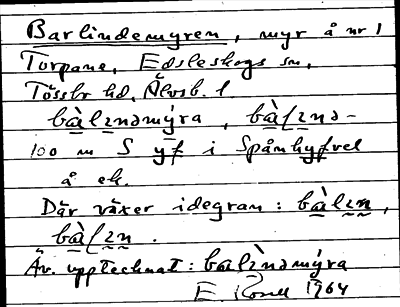 Barlindemyren, myr å nr 1
Torpane, Edsleskogs sn,
Tössbo hd, Älvsb. l.
bàlɪnəmýra, bàlɪnə-
100 m S yf i Spånhyfvel
å ek.
Där växer idegran: bàlɪn,
bàlɪn.
Äv. upptecknat: balɪ̀nəmýra
E. 1964